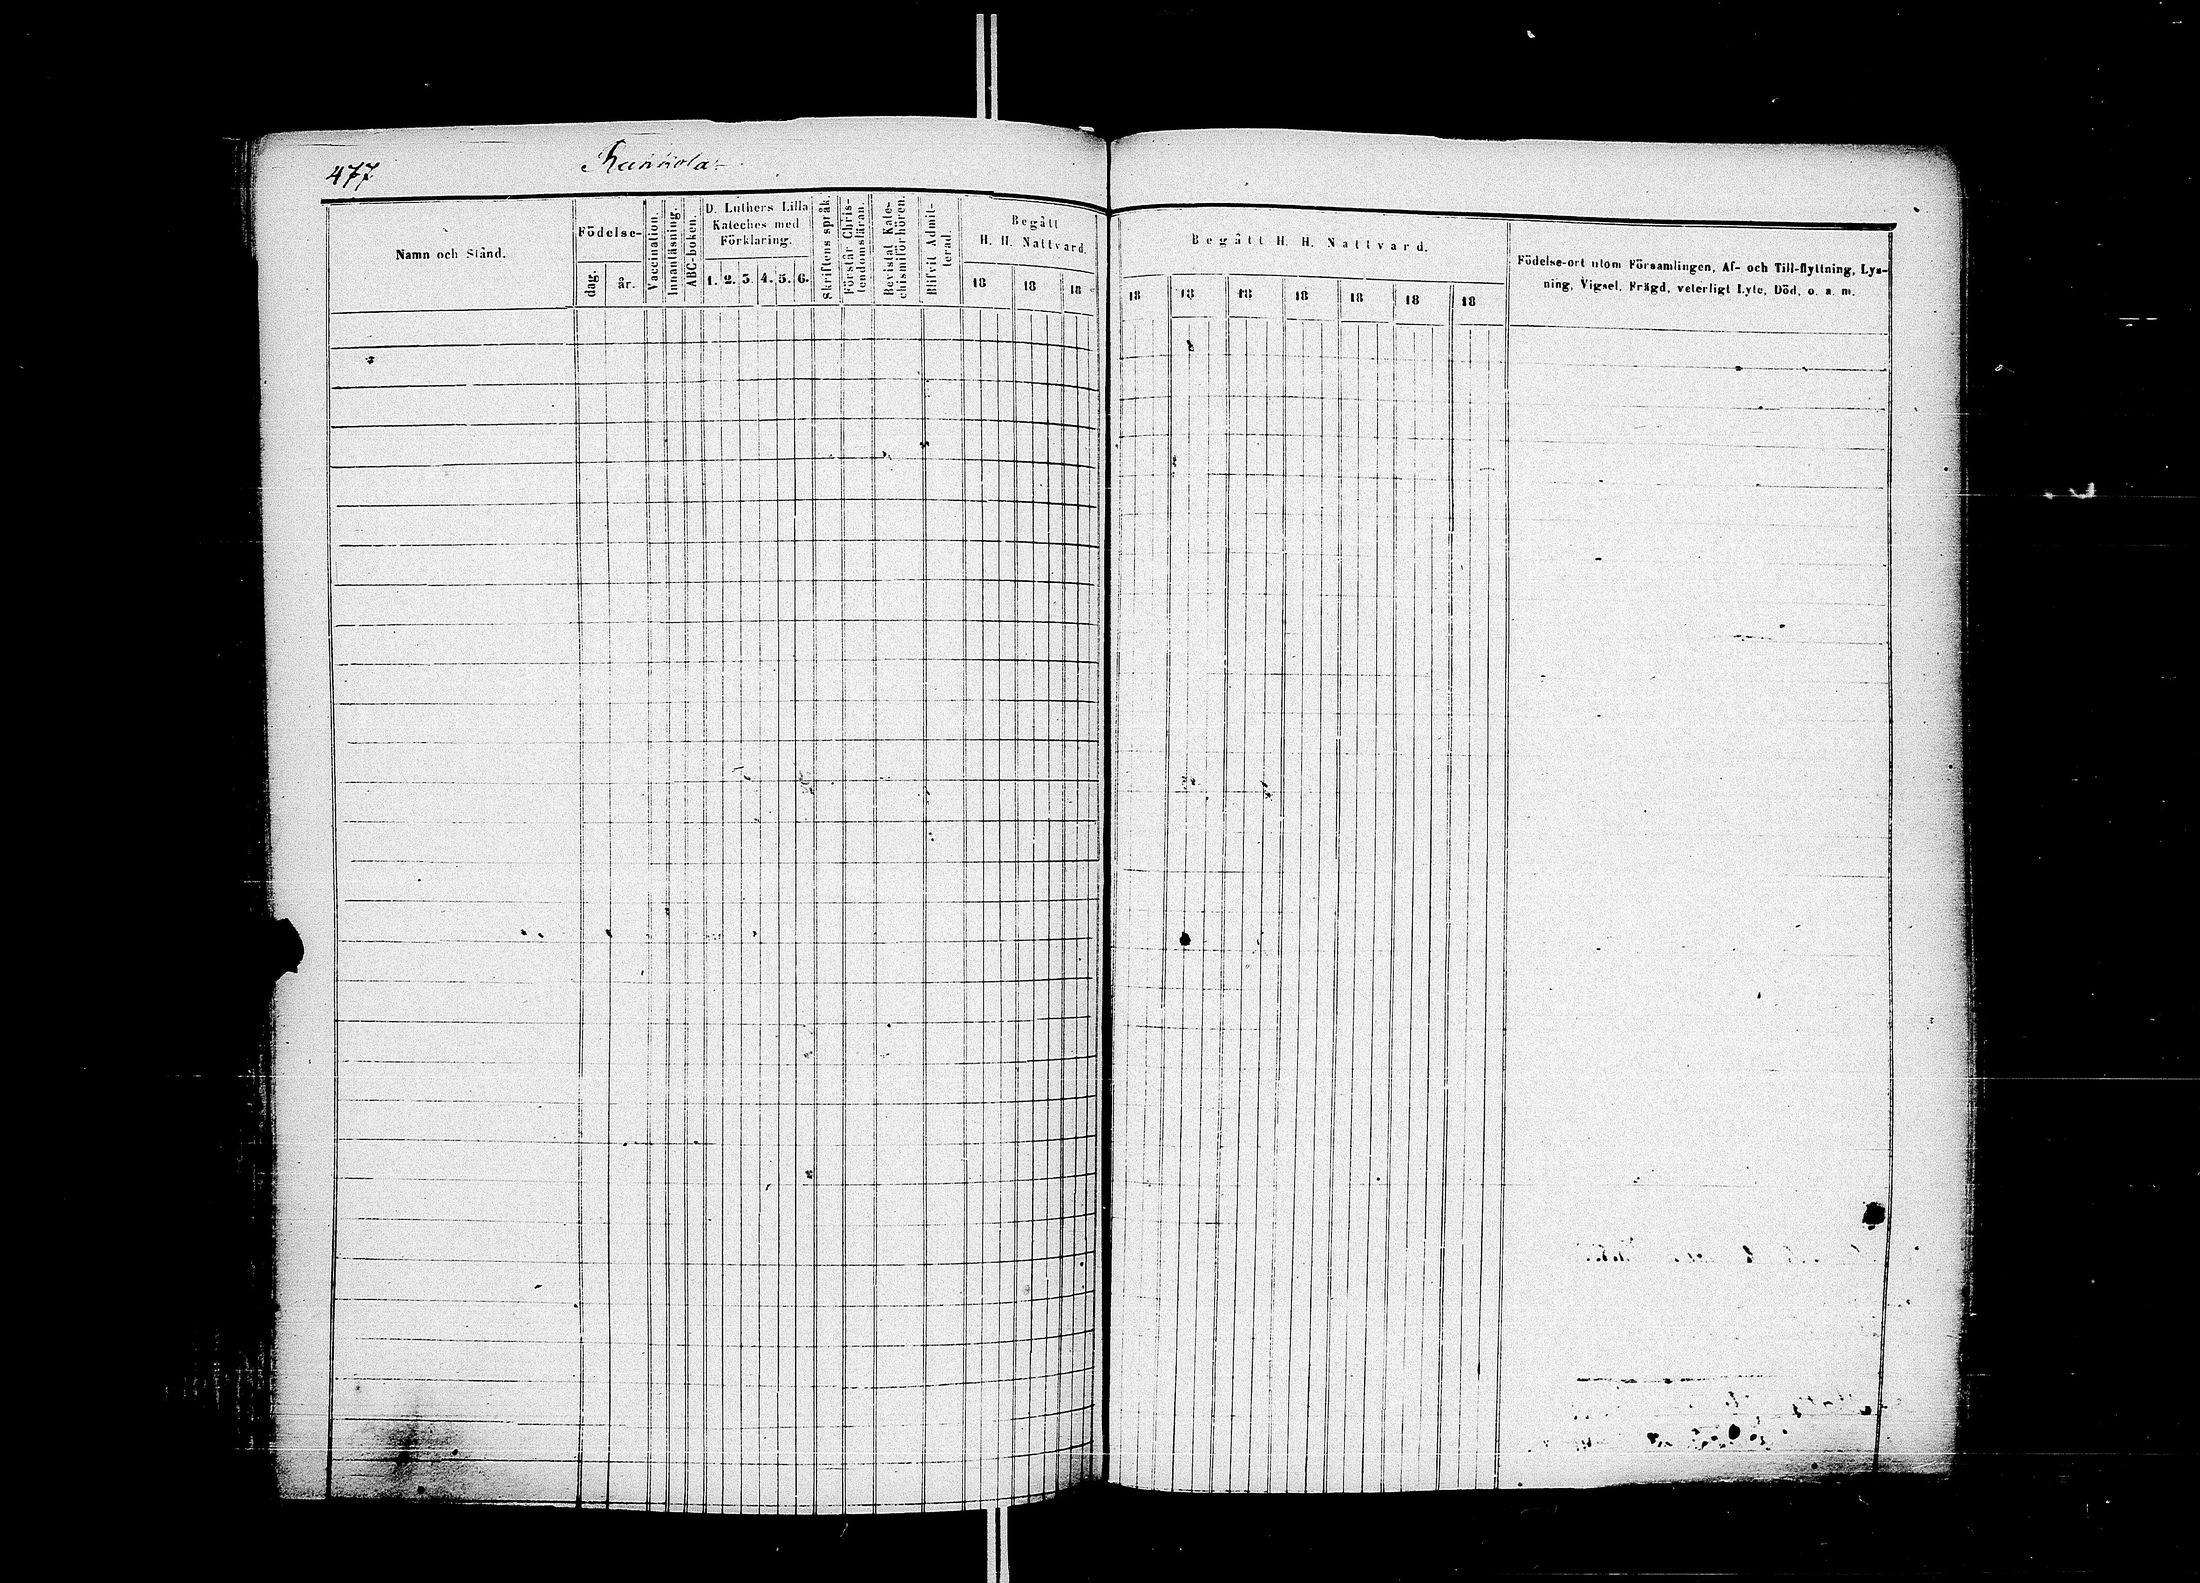 477
Namn och Stånd.
Födelse-
dag.
år.
Vaccination.
Innanläsning.
ABC-boken.
D. Luthers Lilla
Kateches med
Förklaring.
1. 2. 3. 4. 5. 6.
Skriftens språk.
Förstår Chris-
tendomsläran.
Bevistat Kate-
chismiförhören.
Blifvit Admit-
terad.
Begått
H. H. Nattvard
18 18 18
Begått H. H. Nattvard.
18 18 18 18 18 18 18
Födelse-ort utom Församlingen, Af- och Till-flyttning, Lys-
ning, Vigsel, Frägd, veterligt Lyte, Död, o. a. m.